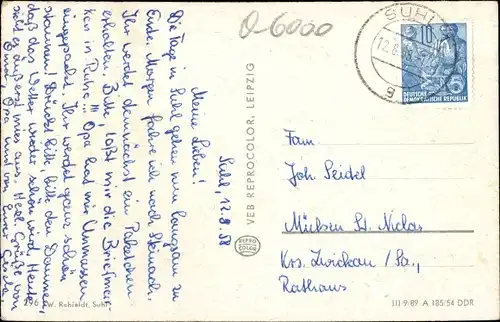 Suhl, 12.8.58
Meine Lieben!
Die Tage in Suhl gehen nun langsam zu
Ende. Morgen fahre ich nach Steinach.
Ihr werdet demnächst ein Paketchen
erhalten. Bitte, laßt mir die Briefmar-
ken in Ruhe!!! Opa hat mir Unmassen
eingepackt. Ihr werdet ganz schön
staunen! Drückt bitte, bitte den Daumen,
daß das Wetter wieder schön wird. Heute
sieht es äußerst mies aus. Herzl. Grüße von
Omi, Opa und von Eurer Gisela.
296 W. Rahfeldt, Suhl
VEB REPROCOLOR, LEIPZIG
REPRO
COLOR
O-6000
SUHL
12.8.58
g
10
DEUTSCHE
DEMOKRATISCHE REPUBLIK
Fam
Joh. Seidel
Mülsen St. Niclas
Krs. Zwickau / Sa.,
Rathaus
III-9-89 A 185/54 DDR